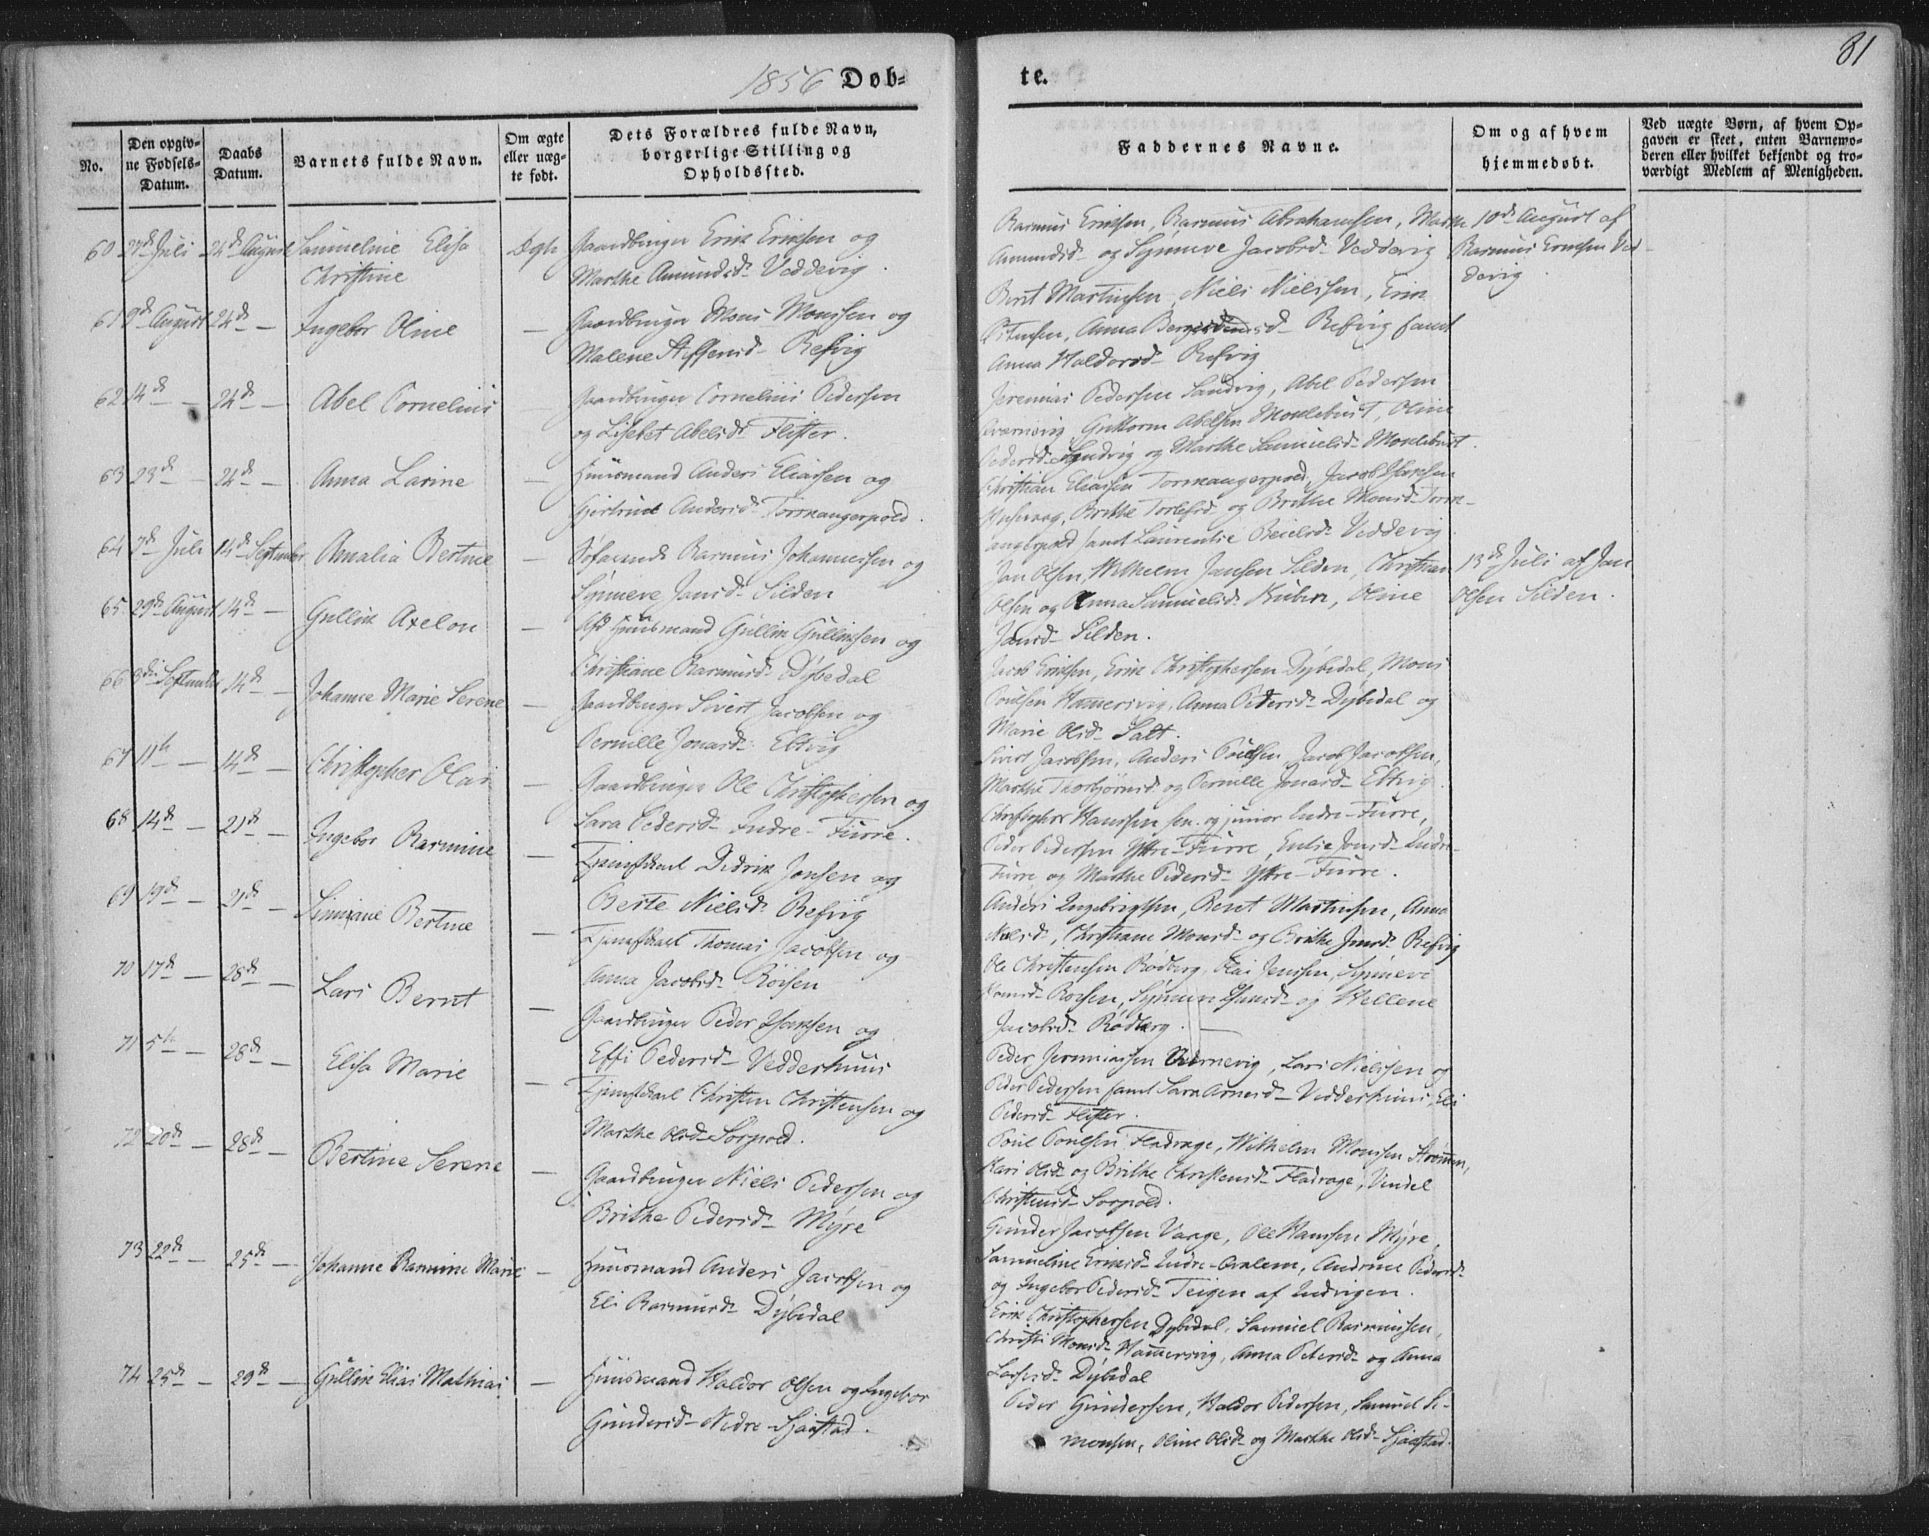 1856 Døb-
te.
81
No.
Den opgiv-
ne Fødsels-
Datum.
Daabs
Datum.
Barnets fulde Navn.
Om ægte
eller uæg-
te født.
Dets Forældres fulde Navn,
borgerlige Stilling og
Opholdssted.
Faddernes Navne.
Om og af hvem
hjemmedøbt.
Ved uægte Børn, af hvem Op-
gaven er skeet, enten Barnemo-
deren eller hvilket bekjendt og tro-
værdigt Medlem af Menigheden.
60 27de Juli 24de August Samueline Elisa
Christine
Ægte
Gaardbruger Erik Eriksen og
Marthe Amundsd. Veddevig.
Rasmus Eriksen, Rasmus Abrahamsen, Marthe
Amundsd. og Synneve Jacobsd. Veddevig
10de August af
Rasmus Eriksen Ved-
devig
61 9de August 24de — Ingebor Oline —
Gaardbruger Mons Monssen og
Malene Steffensd. Refvig
Bent Martinsen, Niels Nielssen, Erik
Anna Refvig samt
Anna Haldorsd. Refvig
62 14de — 24de — Abel Cornelius —
Gaardbruger Cornelius Pedersen
og Lisebet Abelsd. Flister.
Jeremias Pedersen Sandvig, Abel Pedersen
Guttorm Abelsen Moldebust, Oline
Pedersd. Sandvig og Marthe Samuelsd. Moldebust.
63 23de — 24de — Anna Larine —
Huusmand Anders Eliassen og
Gjertrud Andersd. Tormangerpold.
Christian Eliassen Tormangerpold, Jacob Hansen
Brithe Torlefsd. og Brithe Monsd. Torm-
angerpold samt Laurentie Veddevig
64 7de Juli 14de September Amalia Bertine —
Rasmus Johannessen og
Synneve Jansd. Silden
Jan Olsen, Wilhelm Jansen Silden, Christian
Olsen og Anna Samuelsd. Oline
Jansd. Silden.
13de Juli af Jan
Olsen Silden.
65 29de August 14de — Gullik Axelon —
Huusmand Gullik Gulliksen og
Christiane Rasmusd. Dybedal
Jacob Eriksen, Erik Christophersen Dybedal, Mons
Poulsen Hamersvig, Anna Petersd. Dybedal og
Marie Olsd. Salt.
66 September 14de — Johanne Marie Serene —
Gaardbruger Sivert Jacobsen og
Pernille Jonasd. Eltvig
Sivert Jacobsen, Anders Poulsen, Jacob Jacobsen,
Marthe Thorbjørnsd. og Pernille Jonasd. Eltvig.
67 11te — 14de — Christopher Olai —
Gaardbruger Ole Christophersen og
Sara Pedersd. Indre-Furre.
Christopher Hanssen sen. og junior Indre-Furre,
Peder Pedersen Ytre-Furre, Jonsd. Indre-
Furre og Marthe Pedersd. Ytre-Furre.
68 14de — 21de — Ingebor Rasmine —
Tjenestkarl Didrik Jonsen og
Berte Nielsd. Refvig
Anders Engebrigtsen, Bent Martinsen, Anna
Nielsd., Christiane Monsd. og Brithe Jonsd. Refvig
69 19de — 21de — Bertine —
Tjenestkarl Thomas Jacobsen og
Anna Jacobsd. Røisen
Ole Christensen Rødberg, Olai Jenssen, Synneve
Røisen, Synneve og Hellene
Jacobsd. Rødberg. —
70 17de — 28de — Lars Bernt —
Gaardbruger Peder Hansen og
Effi Pedersd. Vedderhuus
Peder Jeremiassen Lars Nielssen og
Peder Pedersen samt Sara Arnesd. Vedderhuus, Eli
Pedersd. Flister.
71 5te — 28de — Elisa Marie —
Tjenestkarl Christen Christensen og
Marthe Olsd. Sorpold.
Poul Poulsen Fladrage, Wilhelm Monssen Strømmen,
Kari Olsd. og Brithe Christensd. Fladrage, Vendel
Christensd. Sorpold.
72 20de — 28de — Bertine Serene —
Gaardbruger Niels Pedersen og
Brithe Pedersd. Myre
Gunder Jacobsen Vaage, Ole Hanssen Myre,
Samueline Eriksd. Indre- Andrine Pedersd.
og Ingebor Pedersd. Teigen af Indvigen.
73 22de — 25de — Johanne Rasmine Marie —
Huusmand Anders Jacobsen og
Eli Rasmusd. Dybedal
Erik Christophersen Dybedal, Samuel Rasmussen,
Christi Monsd. Hamersvig, Anna Petersd. og Anna
Larsesd. Dybedal
74 25de — 29de — Gullik Elias Mathias —
Huusmand Haldor Olsen og Ingebor
Gundersd. Nedre-Sjaastad.
Peder Gundersen, Haldor Pedersen, Samuel Si-
monsen, Oline Olsd. og Marthe Olsd. Sjaastad.